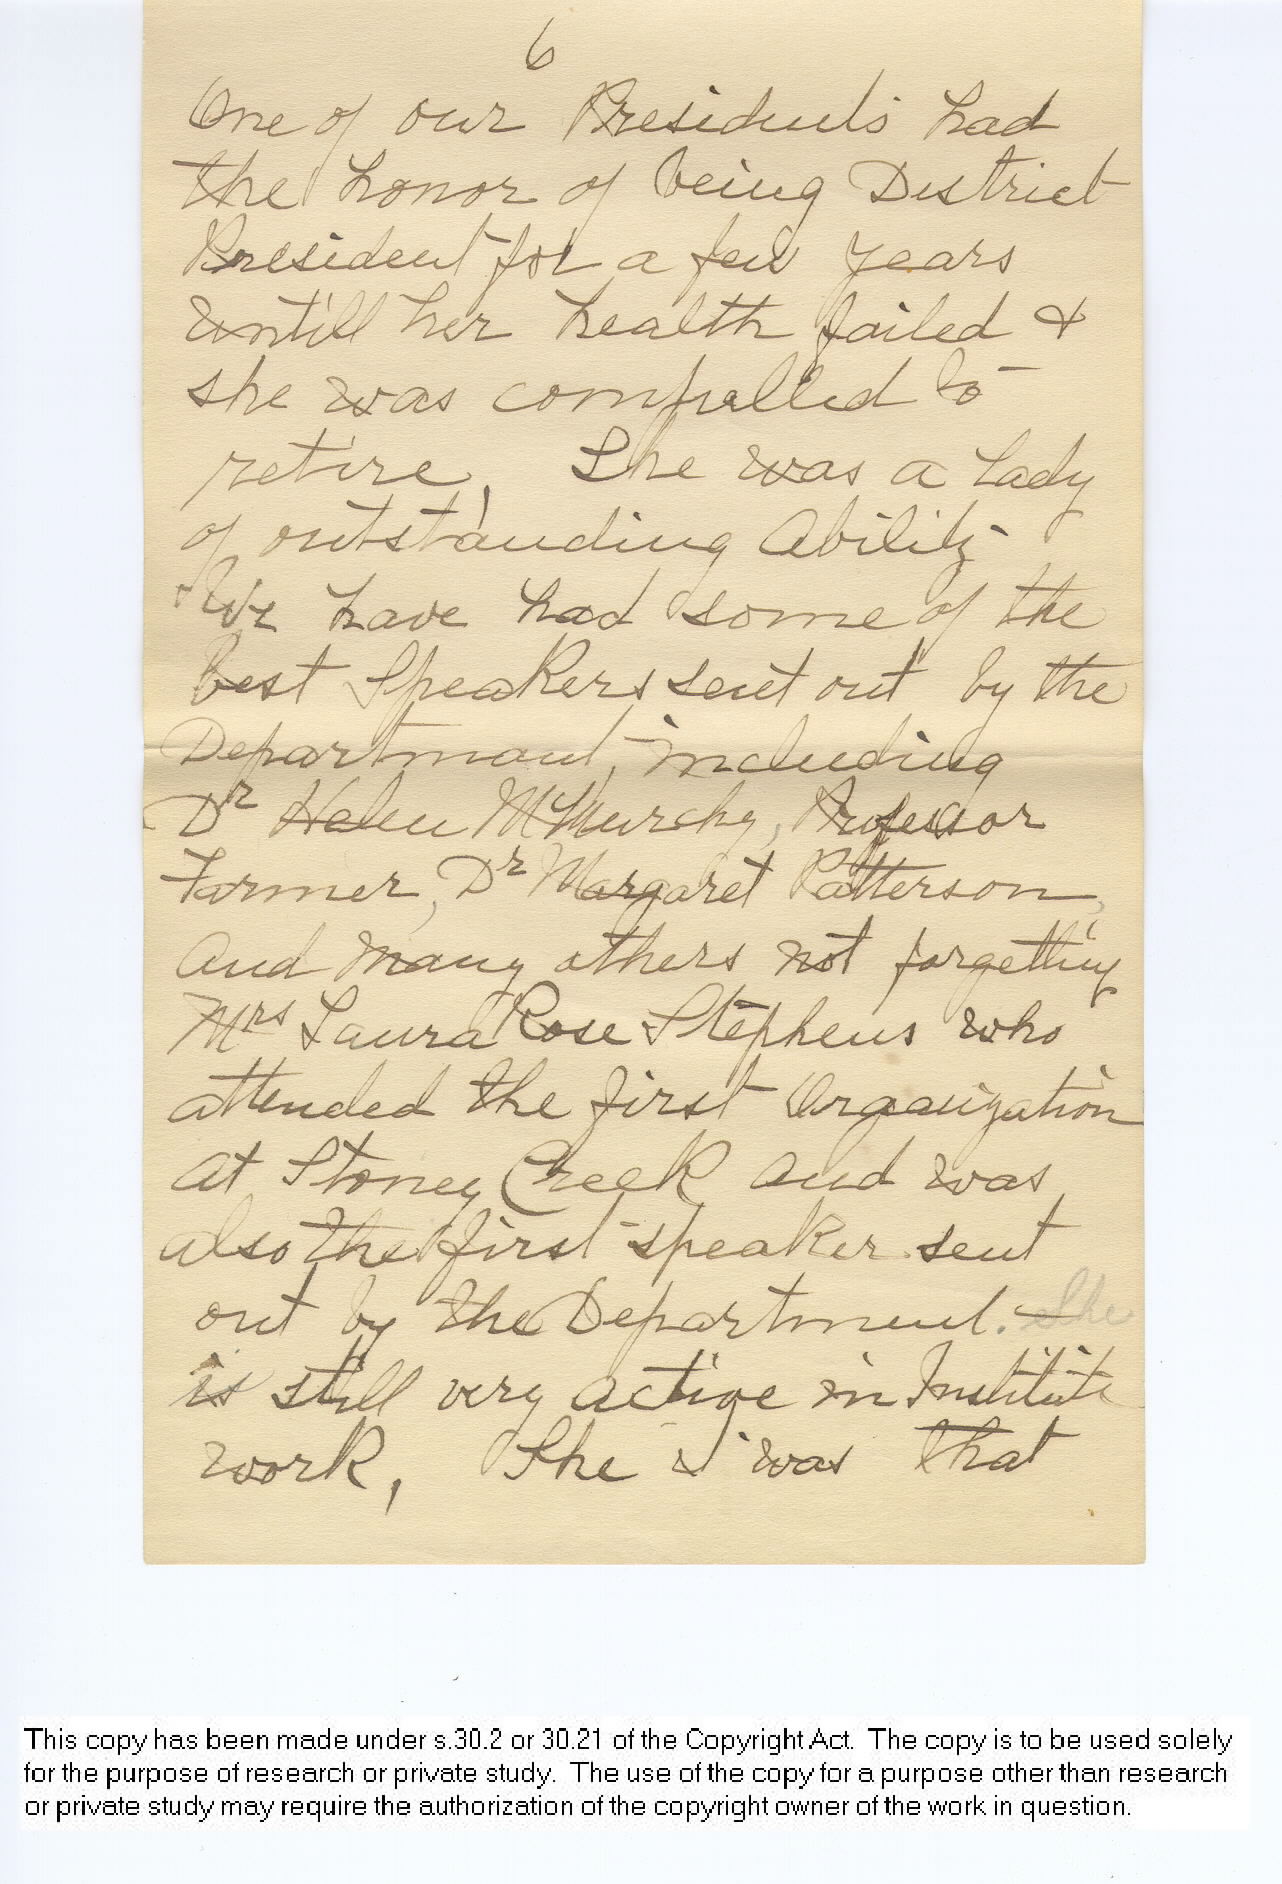 6
One of our Presidents had
the honor of being District
President for a few years
untill her health failed &
she was compelled to
retire, She was a lady
of outstanding ability
We have had some of the
best Speakers sent out by the
Department, including
Dr Helen McMurchy, Professor
Farmer, Dr Margaret Patterson,
and many others not forgetting
Mrs Laura Rose Stephens who
attended the first Organization
at Stoney Creek and was
also the first speaker sent
out by the Department. She
is still very active in Institute
work, She was that
This copy has been made under s.30.2 or 30.21 of the Copyright Act. The copy is to be used solely
for the purpose of research or private study. The use of the copy for a purpose other than research
or private study may require the authorization of the copyright owner of the work in question.